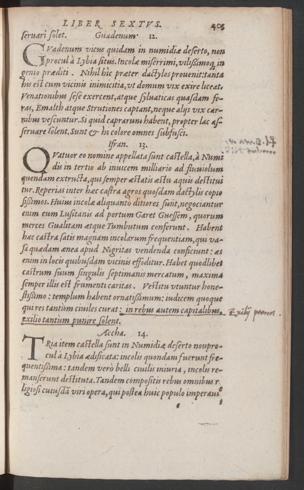 LIBER SEXTVS. 405
seruari solet. Guadenum. 12.
GVadenum vicus quidam in numidiæ deserto, non
procul à Lybia situs. Incolæ miserrimi, vilissimoq́; in
genio præditi. Nihil hîc præter dactylos prouenit: tanta
his est cum vicinis inimicitia, vt domum vix exire liceat.
Venationibus sese exercent, atque siluaticas quasdam fe-
ras, Emalth atque Strutiones captant, neque alijs vix car-
nibus vescuntur. Si quid caprarum habent, propter lac as-
seruare solent. Sunt & hi colore omnes subfusci.
Ifran. 13.
QVatuor eo nomine appellata sunt castella, à Numi
dis in tertio ab inuicem milliario ad fluuiolum
quendam extructa, qui semper æstatis æstu aquis destitui
tur. Reperias inter hæc castra agros quosdam dactylis copio
sissimos. Huius incolæ aliquanto ditiores sunt, negociantur
enim cum Lusitanis ad portum Garet Guessem, quorum
merces Gualatam atque Tumbutum conferunt. Habent
hæc castra satis magnam incolarum frequentiam, qui va-
sa quædam ænea apud Nigritas vendenda conficiunt: æs
enim in locis quibusdam vicinis effoditur. Habet quodlibet
castrum suum singulis septimanis mercatum, maxima
semper illis est frumenti caritas. Vestitu vtuntur hone-
stissimo: templum habent ornatissimum: iudicem quoque
qui res tantum ciuiles curat: in rebus autem capitalibus,
exilio tantum punire solent.
Accha. 14.
TRia item castella sunt in Numidiæ deserto nonpro-
cul à Lybia ædificata: incolis quondam fuerunt fre-
quentissima: tandem verò belli ciuilis iniuria, incolis re-
manserunt destituta. Tandem compositis rebus omnibus r
ligiosi cuiusdã viri opera, qui postea huic populo imperaui